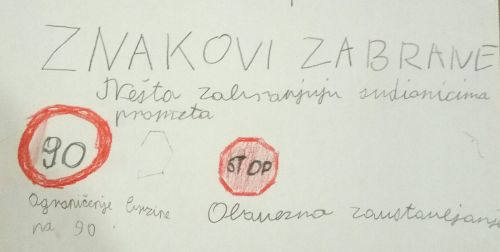 ZNAKOVI ZABRANE
Nešta zabranjuju sudionicima
prometa
90
STOP
Ograničenje brzine
na 90.
Obavezna zaustavljanje